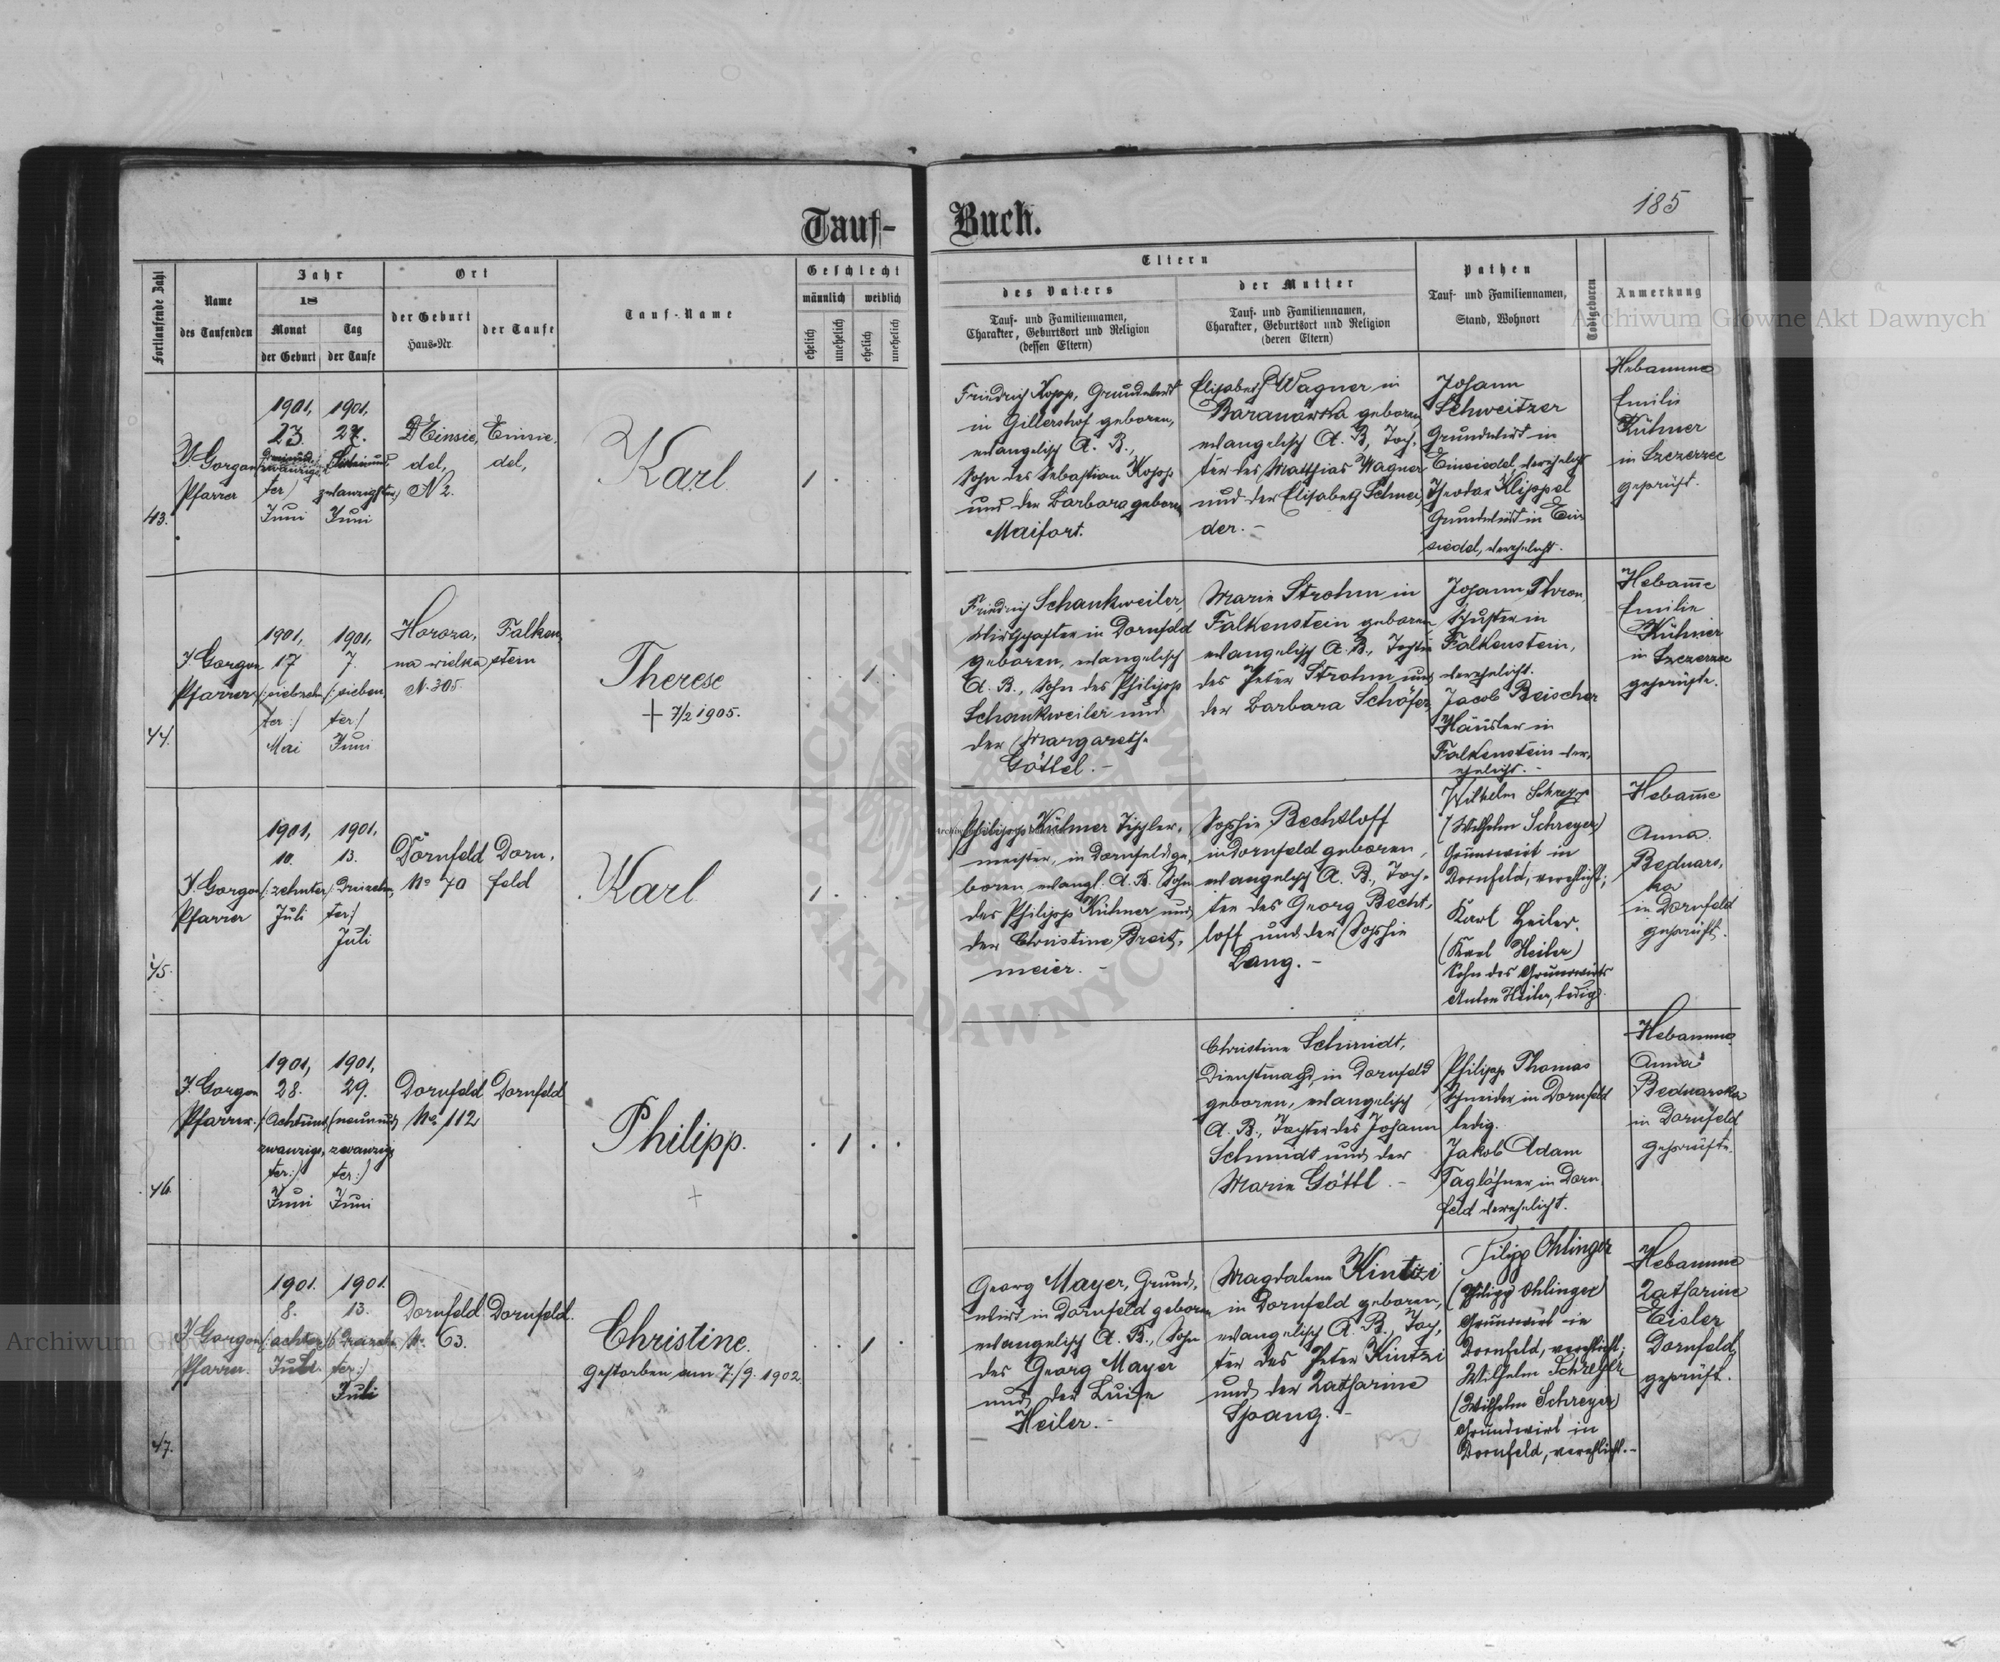 185
Tauf- Buch.
Fortlaufende Zahl
Name
des Taufenden
Jahr
18
Monat
der Geburt
Tag
der Taufe
Ort
der Geburt
Haus-Nr.
der Taufe
Tauf-Name
Geschlecht
männlich
weiblich
ehelich
unehelich
ehelich
unehelich
Eltern
des Vaters
Tauf- und Familiennamen,
Charakter, Geburtsort und Religion
(dessen Eltern)
der Mutter
Tauf- und Familiennamen,
Charakter, Geburtsort und Religion
(deren Eltern)
Pathen
Tauf- und Familiennamen,
Stand, Wohnort
Todtgeboren
Anmerkung
43.
J. Gorgon
Pfarrer
1901,
23.
ter)
Juni
1901.
27.
zwanzigster)
Juni
Einsie,
del,
N 2.
Einsie,
del,
Karl
1
Friedrich Kopp, Grundwirt
in Gillershof geboren,
evangelisch A. B.,
Sohn des Sebastian Kopp
und der Barbara geboren
Maifort.
Elisabeth Wagner in
geboren,
evangelisch A. B., Toch,
ter des Matthias Wagner
und der Elisabeth Schnei,
der. –
Johann
Schweitzer
Grundwirt in
Einsiedel, verehelicht
Theodor Klippel
Grundwirt in Ein
siedel, verehelicht.
Hebamme
Emilie
Kühner
in Szczerzec
geprüft.
44.
J. Gorgon
Pfarrer
1901,
17
(: siebzehn
ter :)
Mai
1901,
7.
(: sieben
ter :)
Juni
na wielka
N. 305.
Falken,
stein
Therese
+ 7/2 1905.
1
Friedrich Schankweiler,
Wirtschafter in Dornfeld
geboren, evangelisch
A. B., Sohn des Philipp
Schankweiler und
der Margareth
Göttel. –
Marie Strohm in
Falkenstein geboren,
evangelisch A. B., Tochter
des Peter Strohm und
der Barbara Schöfer
Johann Thron,
Schuster in
Falkenstein,
verehelicht.
Jacob Beischer
Häusler in
Falkenstein ver,
ehelicht. –
Hebamme
Emilie
Kühner
in Szczerzec
geprüfte.
45.
J. Gorgon
Pfarrer
1901,
10.
(: zehnter
Juli
1901,
13.
(: Dreizehn,
ter :)
Juli
Dornfeld
No 70
Dorn,
feld
Karl
1
Philipp Kühner Tischler,
meister, in Dornfeld ge,
boren evangl. A. B. Sohn
des Philipp Kühner und
der Christine Breit,
meier. –
Sophie Bechtloff
in Dornfeld geboren,
evangelisch A. B., Toch,
ter des Georg Becht,
loff und der Sophie
Lang. –
(Wilhelm Schreyer)
Grundwirt in
Dornfeld, verehlicht;
Karl Heiler.
(Karl Heiler)
Sohn des Grundwirts
Anton Heiler, ledig.
Hebamme
Anna
Bednars,
ka
in Dornfeld
geprüft.
46.
J. Gorgon
Pfarrer.
1901,
28.
(: Achtund
zwanzigs,
ter :)
Juni
1901,
29.
(neunund
zwanzigs
ter :)
Juni
Dornfeld
No 112
Dornfeld
Philipp.
+
1
Christine Schmidt,
Dienstmagd, in Dornfeld
geboren, evangelisch
A. B., Tochter des Johann
Schmidt und der
Marie Göttl. –
Philipp Thomas
Schneider in Dornfeld
ledig.
Jakob Adam
Taglöhner in Dorn
feld verehelicht.
Hebamme
Anna
Bednarska
in Dornfeld
geprüfte
47.
J. Gorgon
Pfarrer.
1901.
8.
(: achter :)
Juli
1901.
13.
ter :)
Juli
Dornfeld
N. 63.
Dornfeld.
Christine.
Gestorben am 7./9. 1902.
1
Georg Mayer, Grund,
wirt in Dornfeld geboren
evangelisch A. B., Sohn
des Georg Mayer
und der Luise
Heiler. –
Magdalena Kintzi
in Dornfeld geboren,
evangelisch A. B., Toch,
ter des Peter Kintzi
und der Katharine
Spang. –
Filipp Ohlinger
(Philipp Ohlinger)
Grundwirt in
Dornfeld, verehlicht;
Wilhelm Schreyer
(Wilhelm Schreyer)
Grundwirt in
Dornfeld, verehlicht. –
Hebamme
Katharine
Eisler
Dornfeld,
geprüft.
Archiwum Główne Akt Dawnych
Archiwum